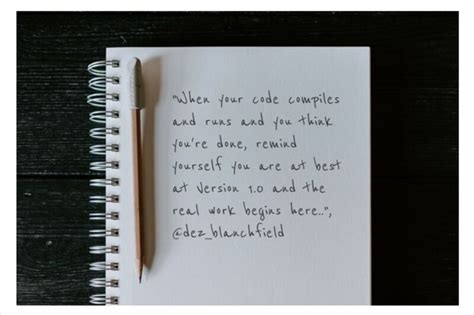 "When your code compiles
and runs and you think
you're done, remind
yourself you are at best
at Version 1.0 and the
real work begins here..",
@dez_blanchfield